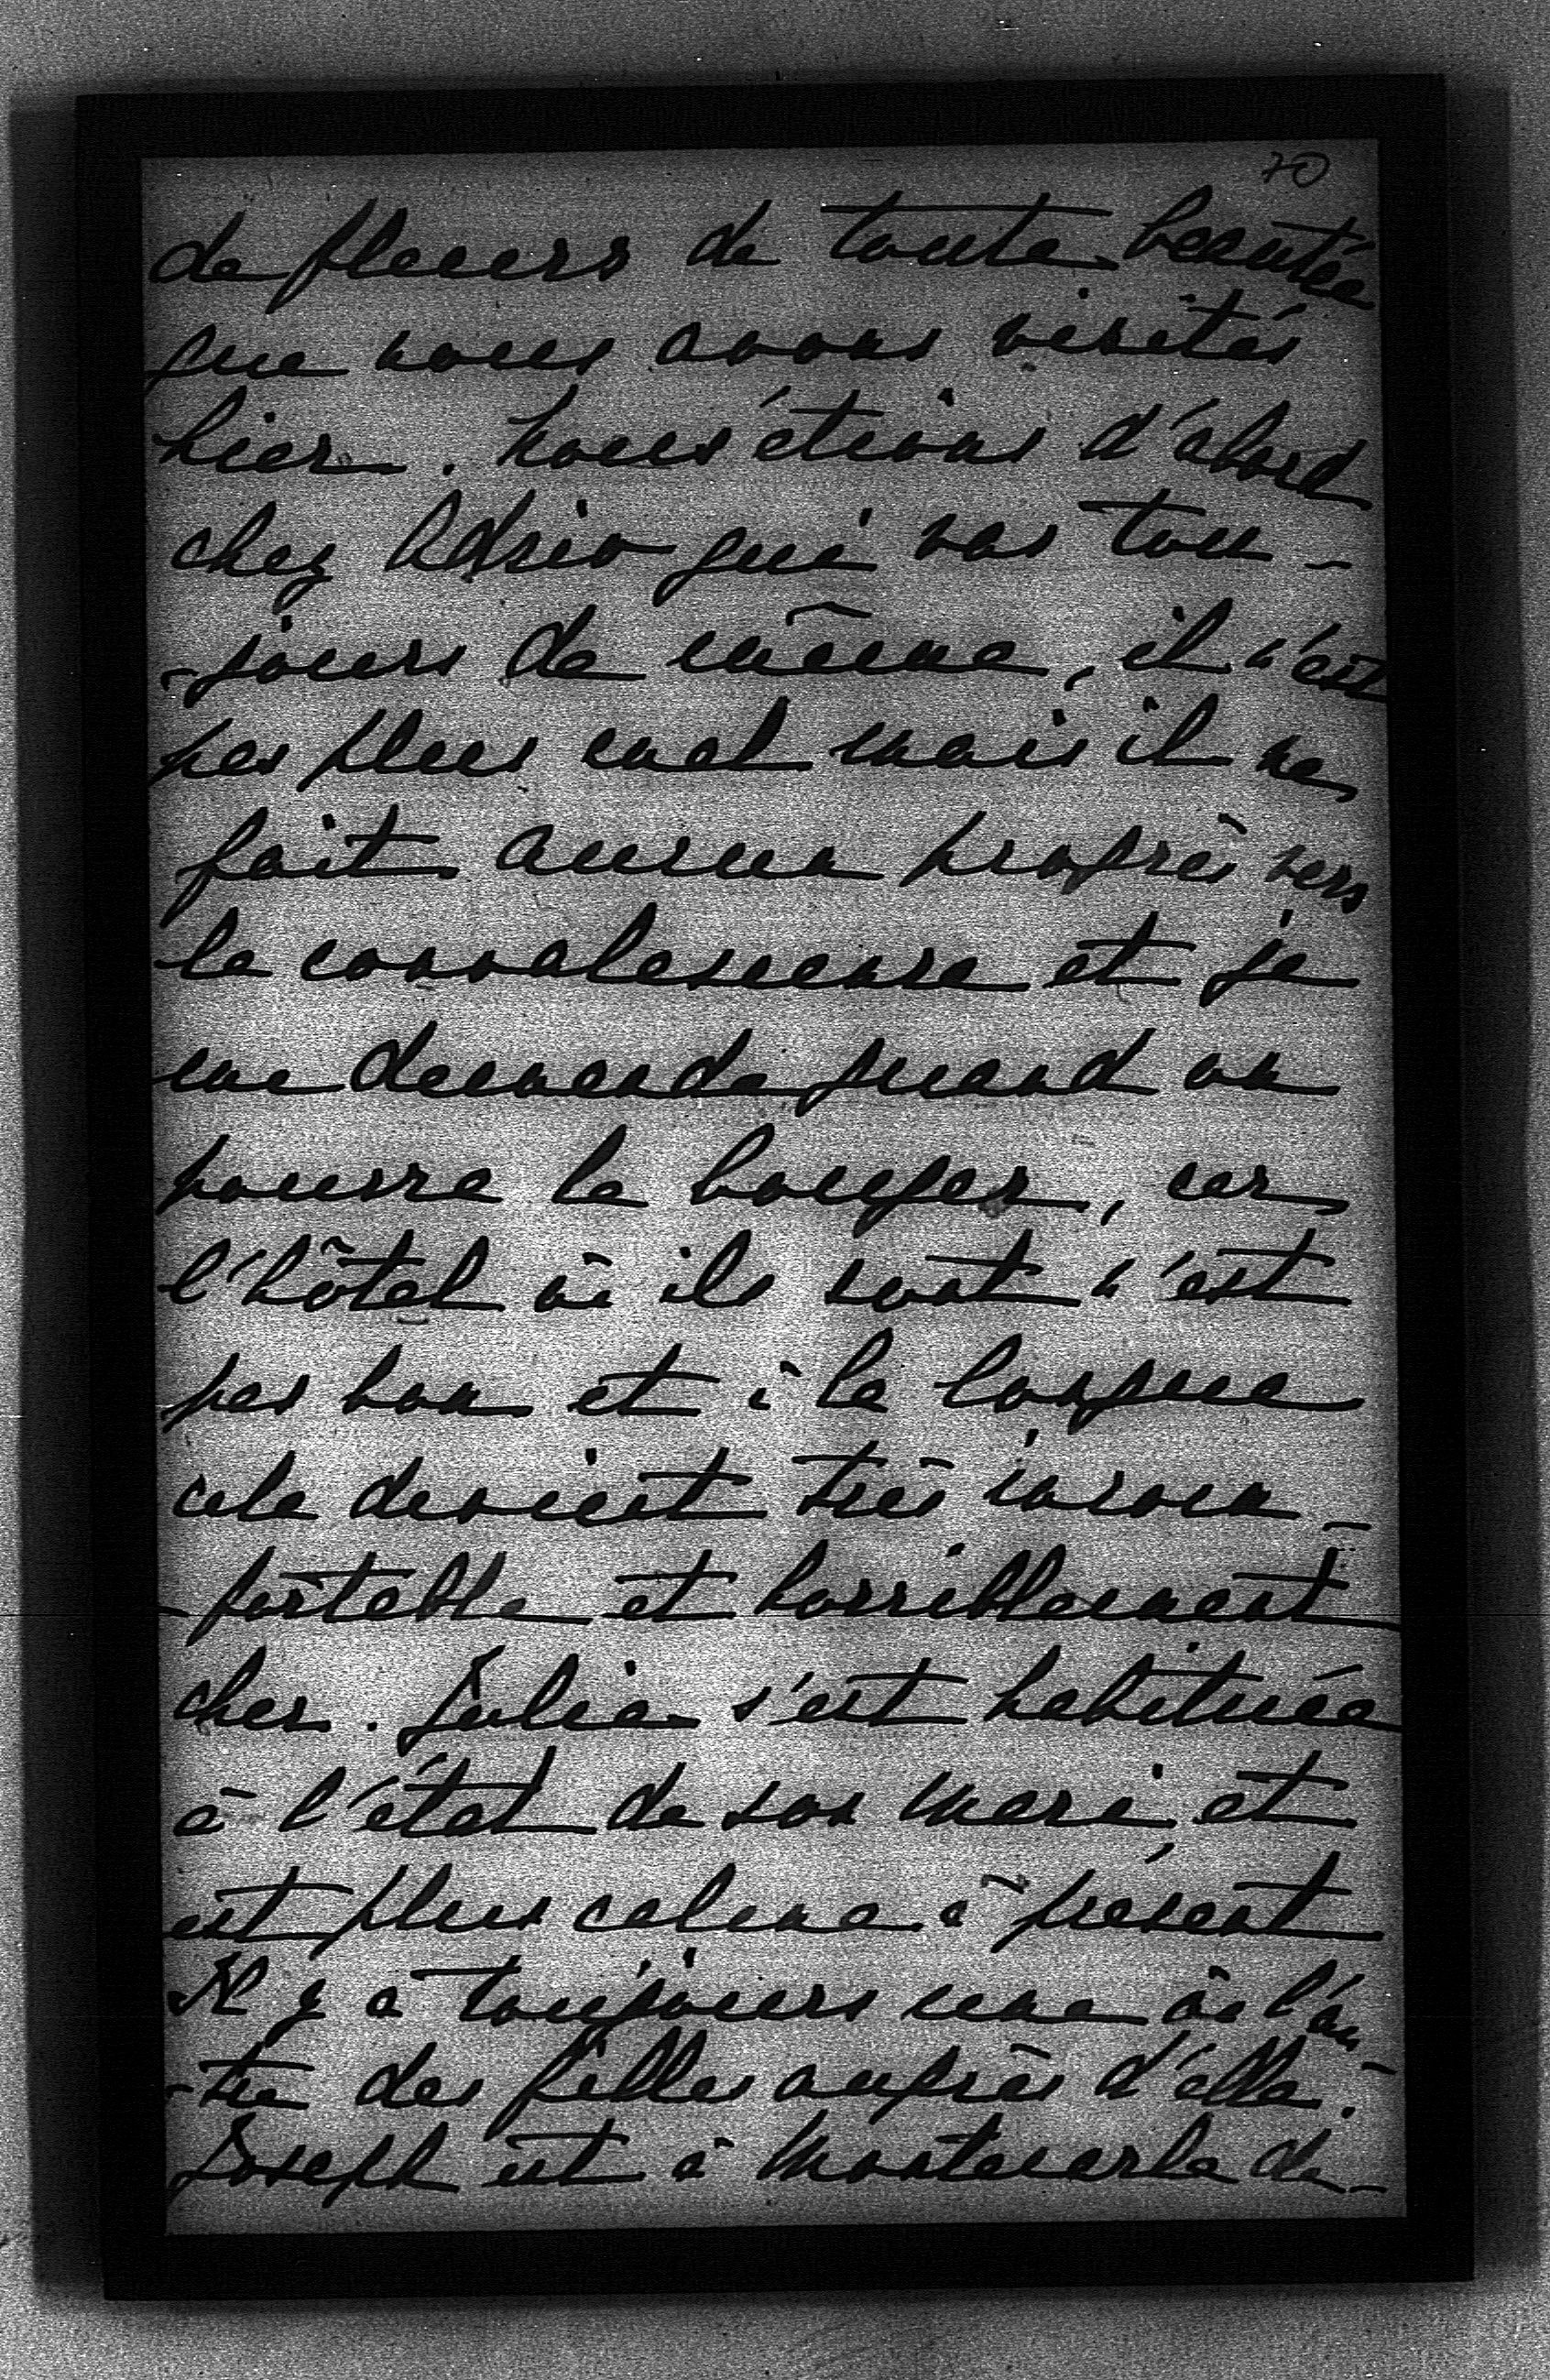 70
de fleurs de toute beautée
que nous avons visités
hier. Nous étions d'abord
chez Adrio qui vas tou-
-jours de même, il n'est
pas plus mal mais il ne
fait aucun progrès vers
la convalescence et je
me demande quand on
pourra le bouger, car
l'hôtel où ils sont n'est
pas bon et à la longue
cela devient très incon-
-fortable et horriblement
cher. Julia s'est habituée
à l'état de son mari et
est plus calme à présent
Il y a toujours une où l'au-
-tre des filles auprès d'elle.
Joseph est à Montecarlo de-